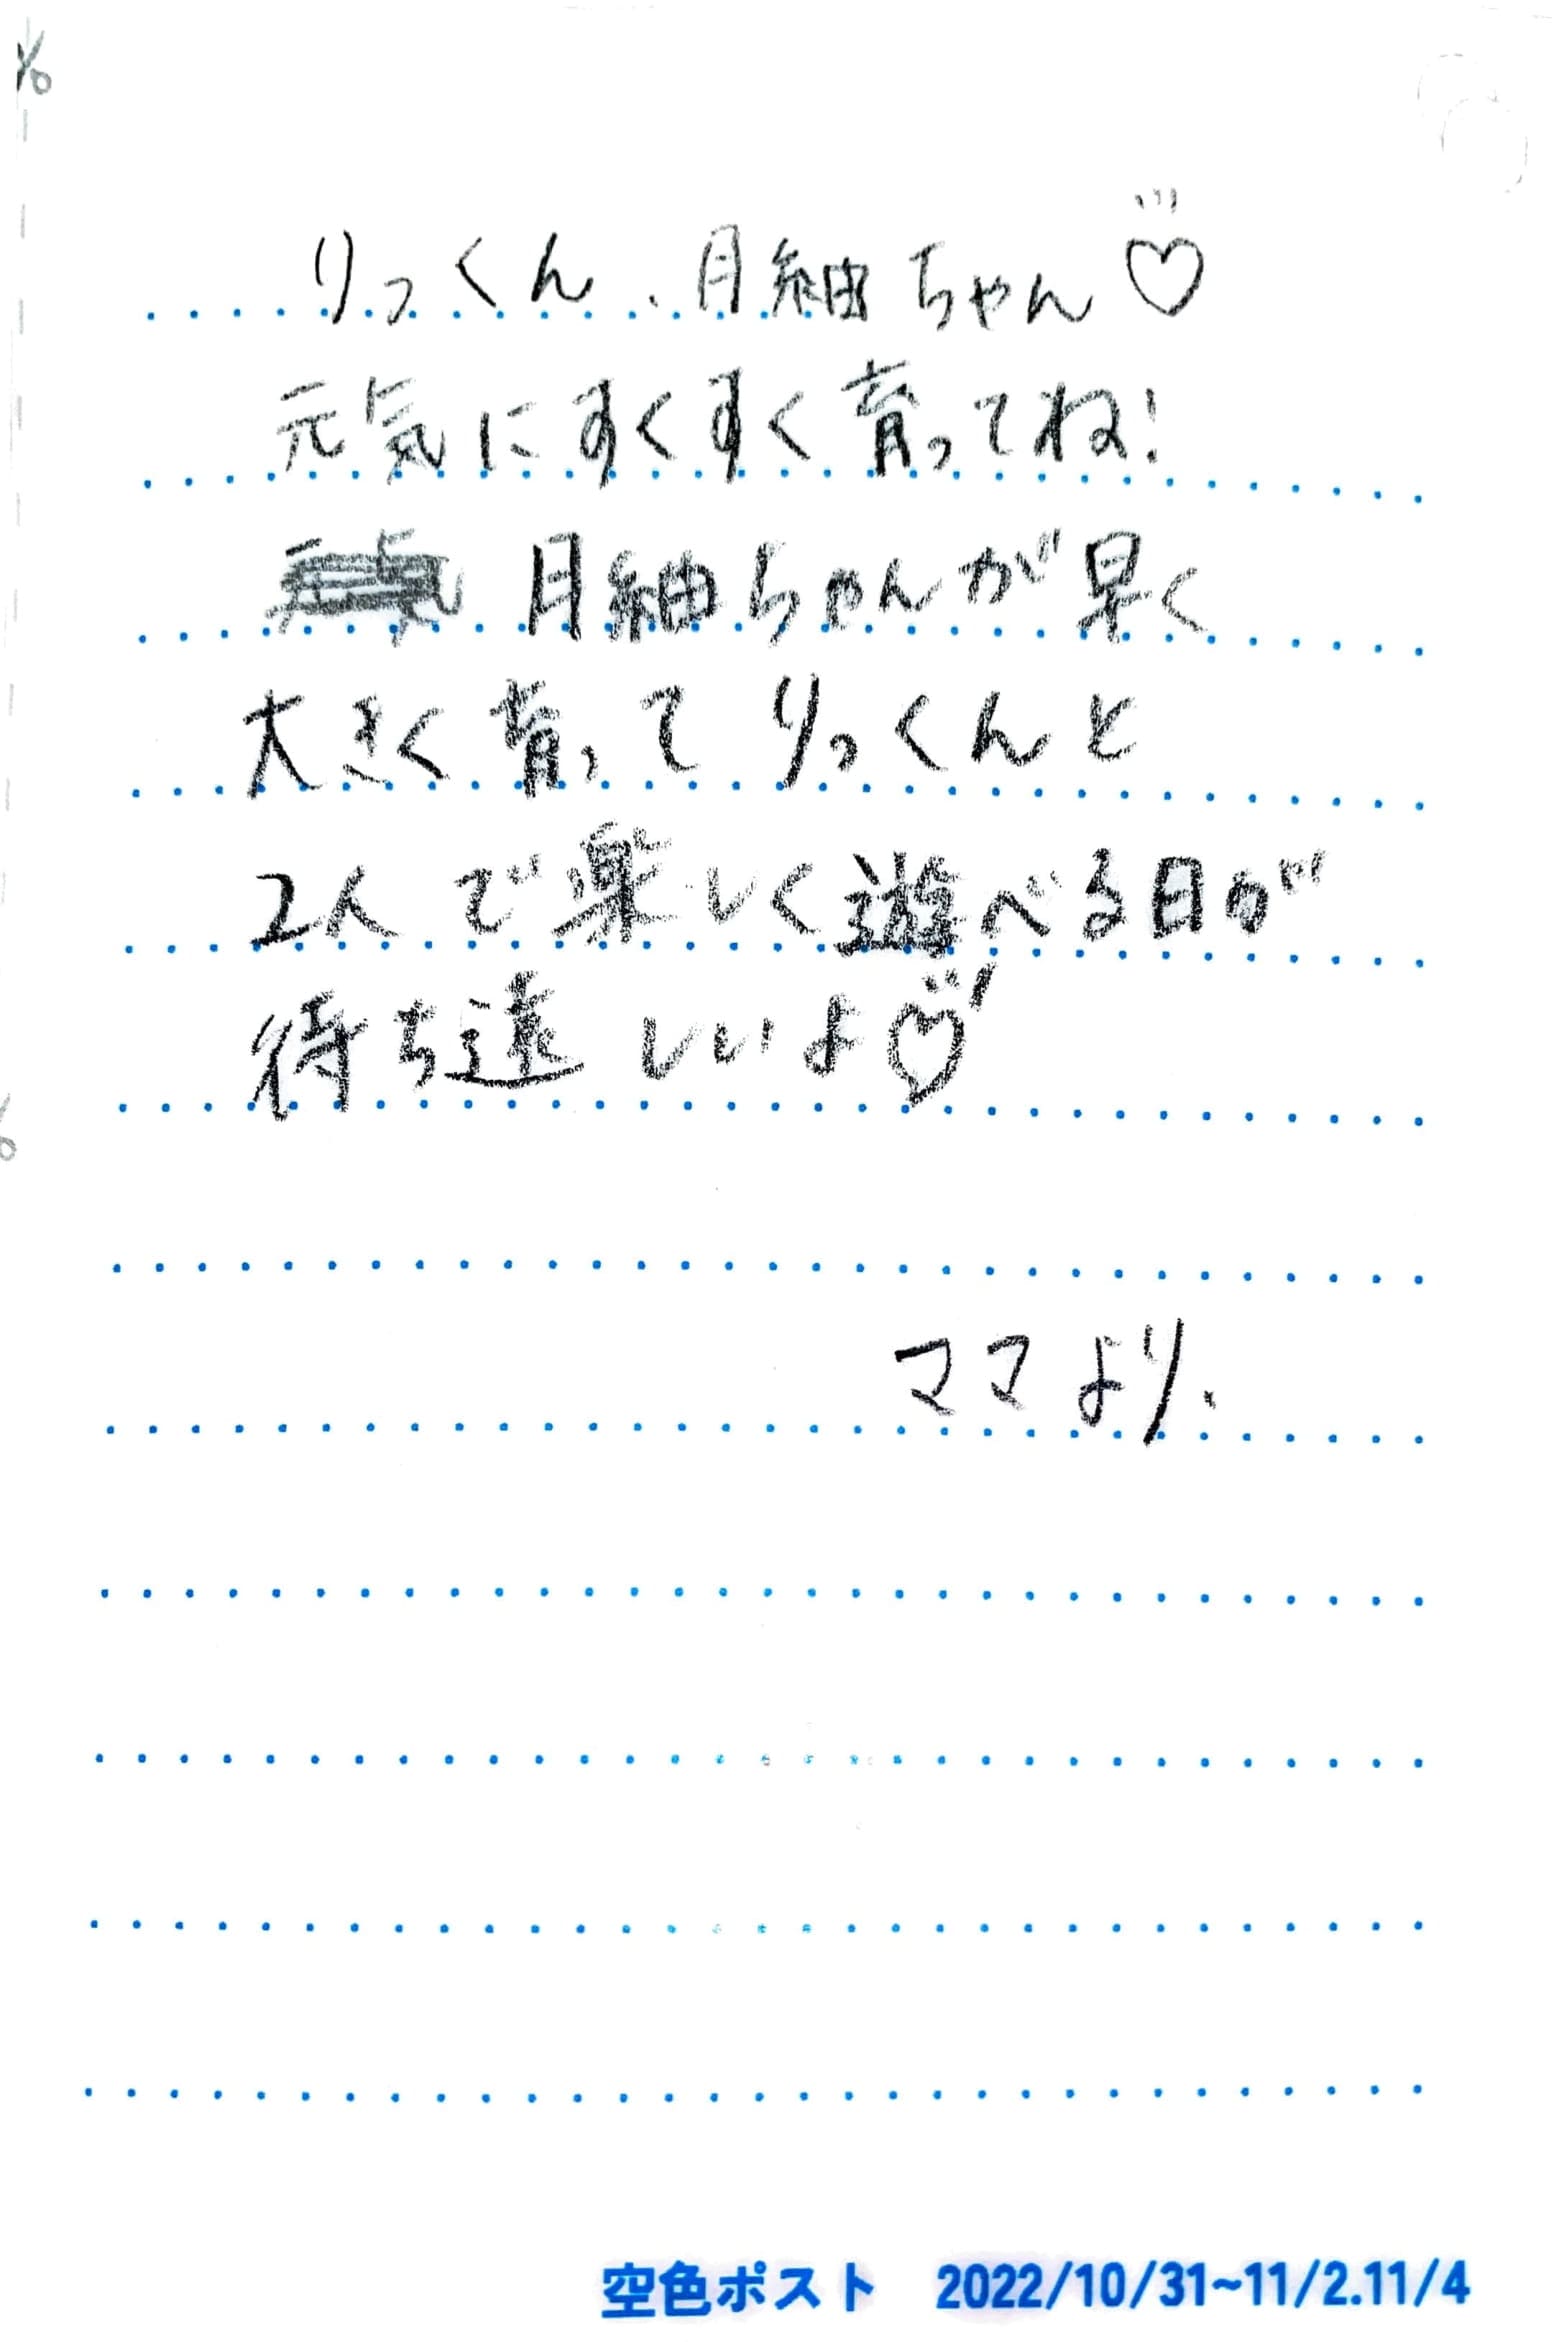 りっくん、月紬ちゃん♡
元気にすくすく育ってね!
月紬ちゃんが早く
大きく育って りっくんと
2人で楽しく遊べる日が
待ち遠しいよ♡
ママより.
空色ポスト 2022/10/31~11/2.11/4